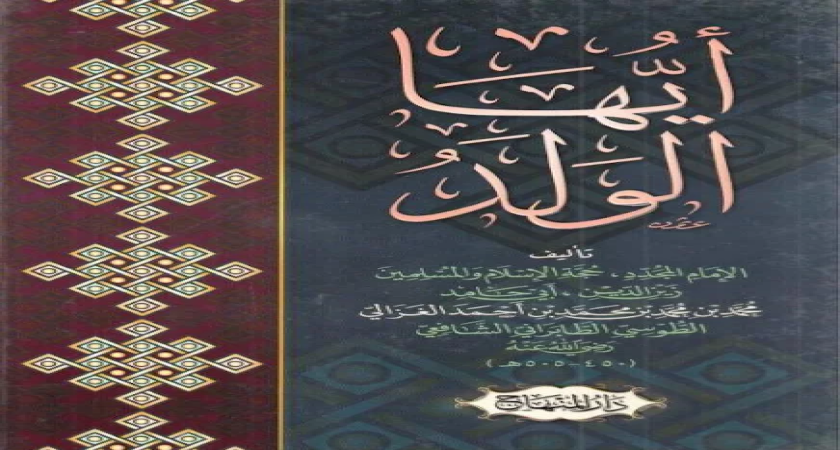 أيُّها
الولد
تأليف
الإمام المجدد، حجة الإسلام والمسلمين
زين الدين، أبي حامد
محمد بن محمد بن محمد بن أحمد الغزالي
الطوسي الطابراني الشافعي
رضي الله عنه
(٤٥٠-٥٠٥هـ)
دار المنهاج